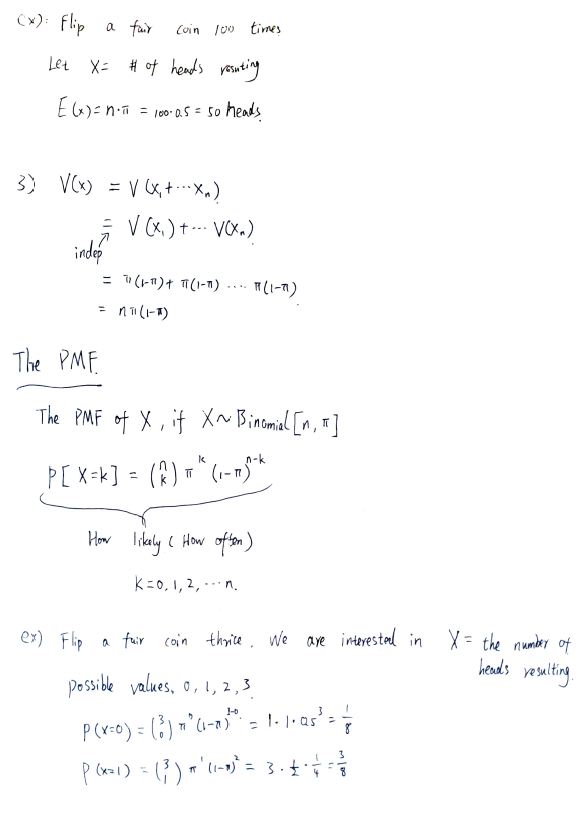 ex): Flip a fair coin 100 times
Let X = # of heads resuting
E(x) = n·π = 100·0.5 = 50 heads.
3) V(x) = V(X₁+···Xₙ)
= V(X₁)+··· V(Xₙ)
indep
= π(1-π)+ π(1-π) ···· π(1-π)
= nπ(1-π)
The PMF.
The PMF of X, if X~Binomial[n, π]
P[X=k] = (n k) π^k (1-π)^n-k
How likely (How often)
K=0, 1, 2, ··· n.
ex) Flip a fair coin thrice. We are interested in X = the number of
heads resulting.
possible values, 0, 1, 2, 3.
P(x=0) = (3 0) π^0 (1-π)^3-0 = 1·1·0.5^3 = 1/8
P(x=1) = (3 1) π^1 (1-π)^2 = 3·1/2·1/4 = 3/8